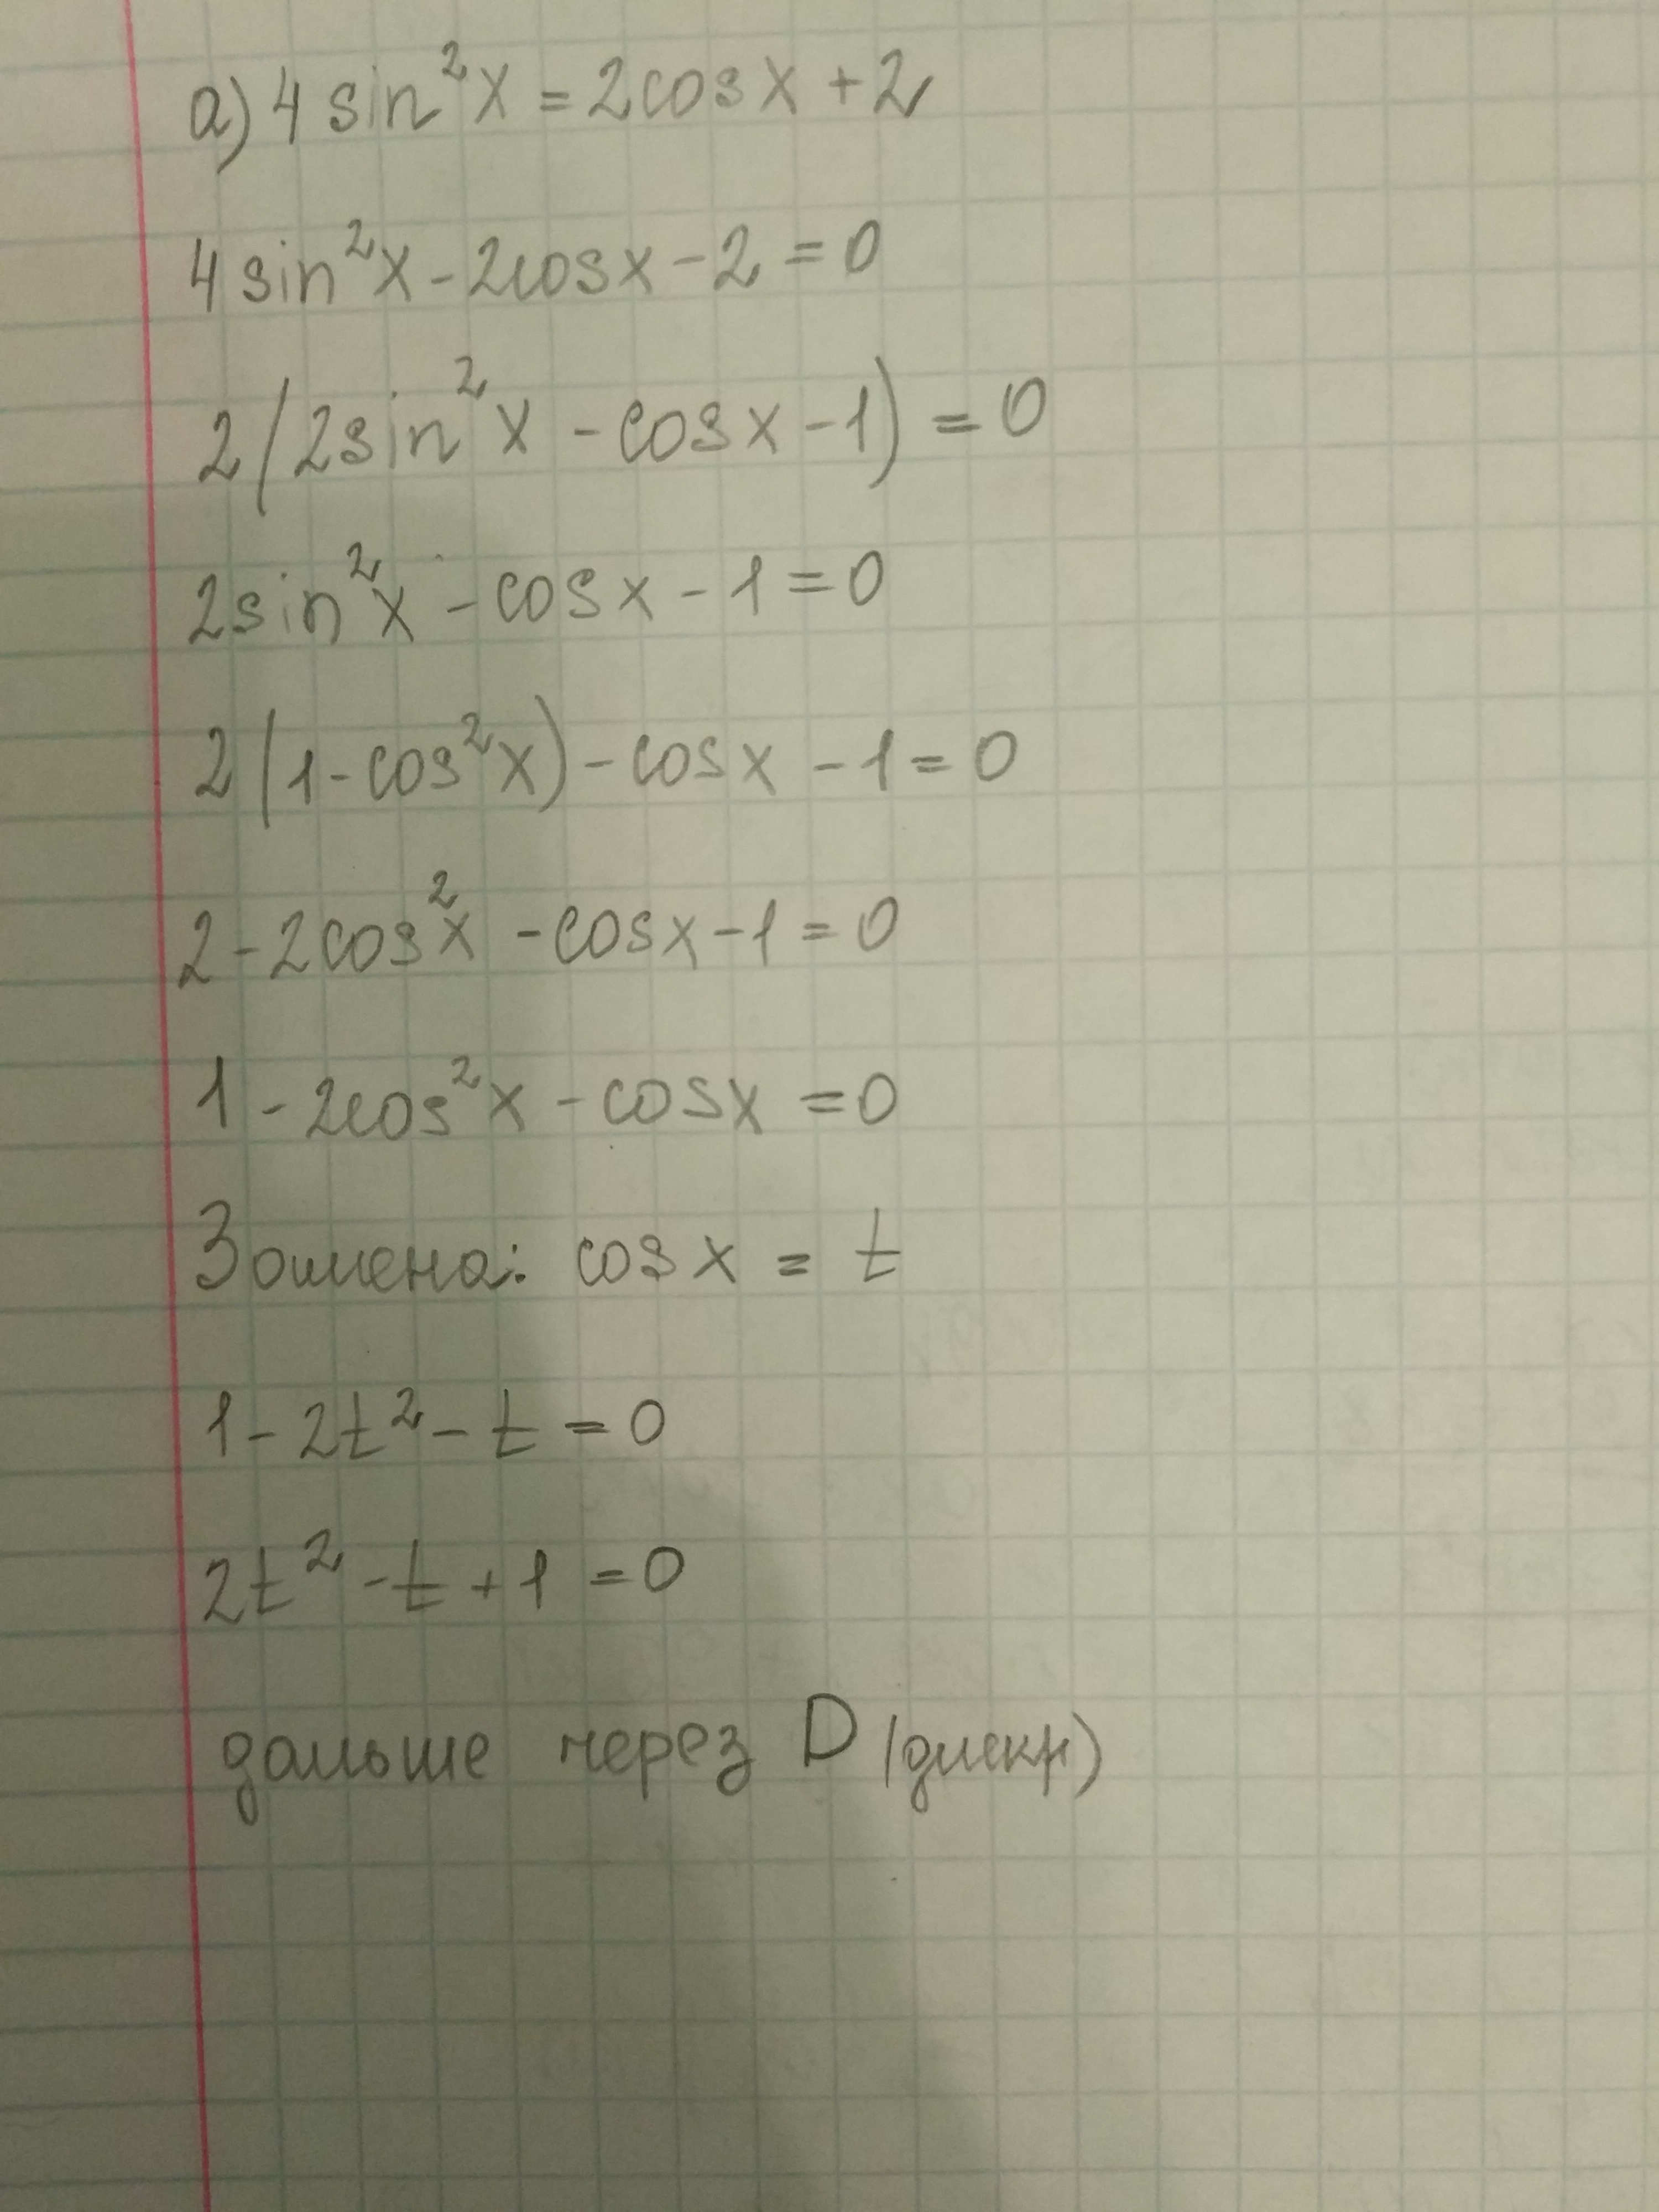 а) 4 sin²x = 2cosx + 2
4sin²x - 2cosx - 2 = 0
2(2sin²x - cosx - 1) = 0
2sin²x - cosx - 1 = 0
2(1 - cos²x) - cosx - 1 = 0
2 - 2cos²x - cosx - 1 = 0
1 - 2cos²x - cosx = 0
Замена: cosx = t
1 - 2t² - t = 0
2t² - t + 1 = 0
дальше через D (дискр)